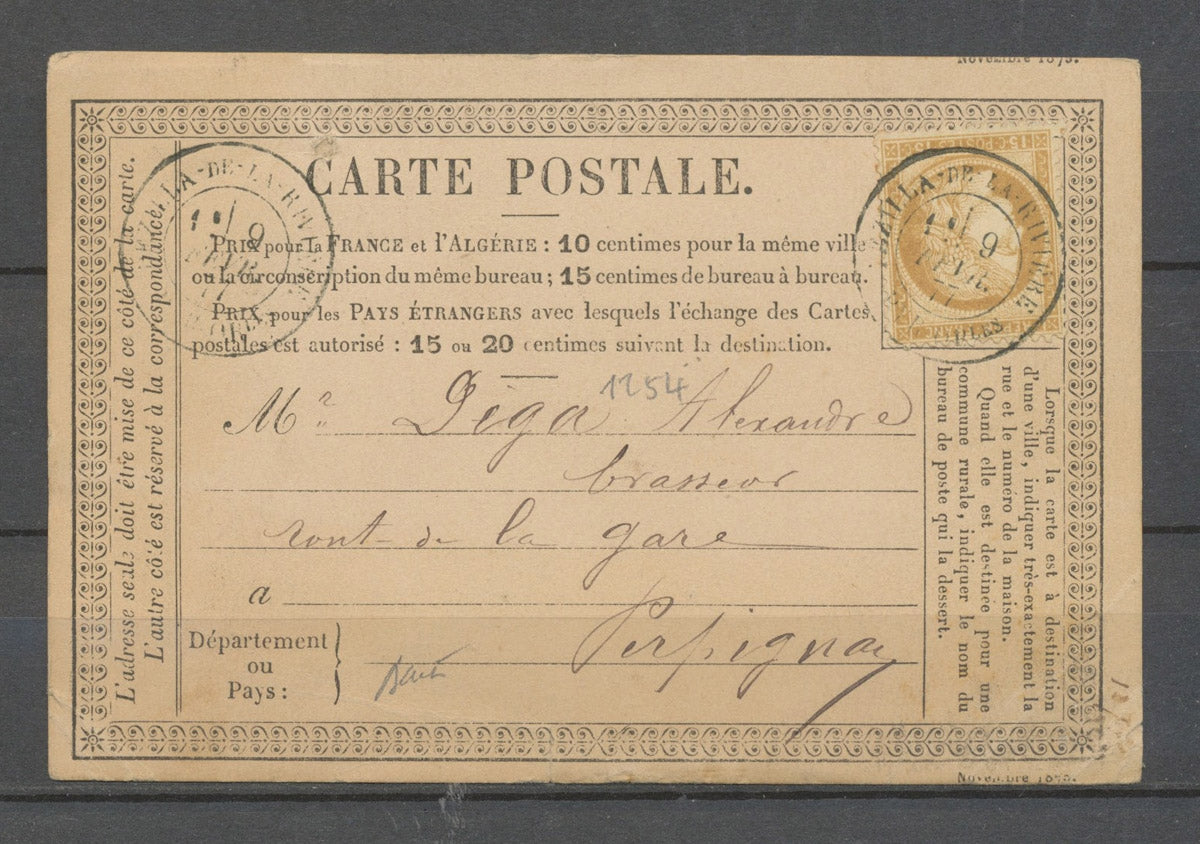 Novembre 1875.
CARTE POSTALE.
PRIX pour la FRANCE et l'ALGÉRIE : 10 centimes pour la même ville
ou la circonscription du même bureau ; 15 centimes de bureau à bureau.
PRIX pour les PAYS ÉTRANGERS avec lesquels l'échange des Cartes
postales est autorisé : 15 ou 20 centimes suivant la destination.
1254
Mr Déga Alexandre
brasseur
rout de la gare
a
Perpignan
Département
ou
Pays :
L'adresse seule doit être mise de ce côté de la carte.
L'autre côté est réservé à la correspondance.
Lorsque la carte est à destination
d'une ville, indiquer très-exactement la
rue et le numéro de la maison.
Quand elle est destinée pour une
commune rurale, indiquer le nom du
bureau de poste qui la dessert.
15 C POSTES 15 C
-DE-LA-RIVIÈRE
9
FEVR.
77
ILLA-DE-LA-RIVIÈRE
9
FEVR.
77
Novembre 1875.